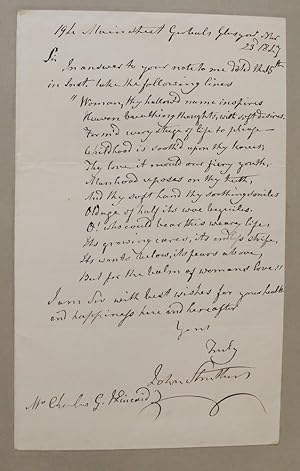 194 Main Street Gorbals Glasgow Nov
23d 1847
Sir
In answer to your note to me dated the 15th
inst. take the following lines
"Woman, thy hallow'd name inspires
Heaven breathing thoughts, with soft desires.
Form'd every stage of life to please—
Childhood is sooth'd upon thy knees,
Thy love it moulds our fiery youth,
Manhood reposes on thy truth,
And thy soft hand thy soothing smiles
Old age of half its woe beguiles.
O! who could bear this weary life,
Its growing cares, its endless strife,
Its wants below, its fears above,
But for the balm of womans love!!
I am Sir with best wishes for your health
and happiness here and hereafter
Yours
Truly
John Struthers
Mr Charles G. Kincaid